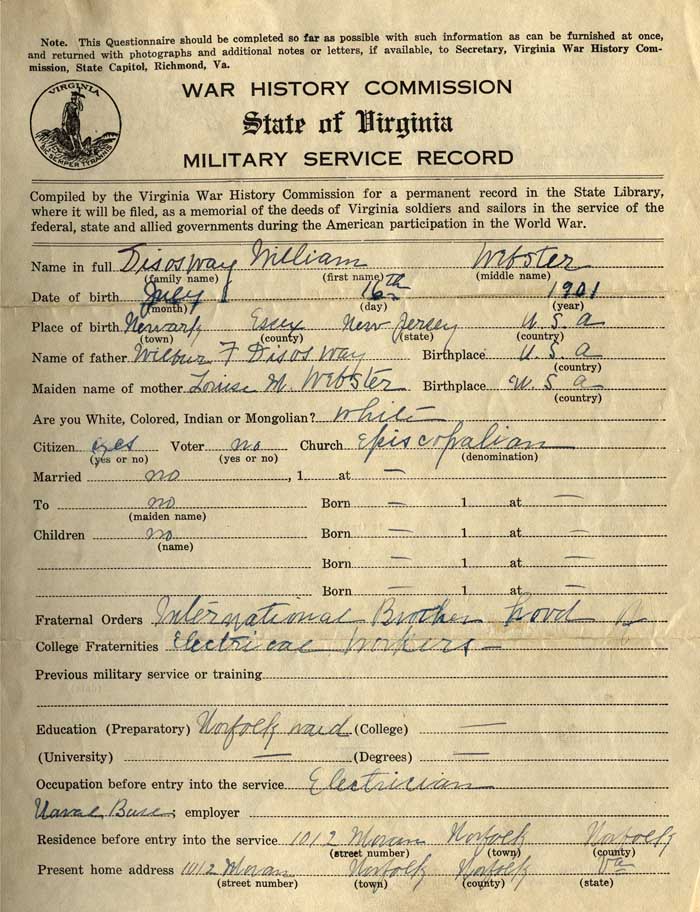 Note. This Questionnaire should be completed so far as possible with such information as can be furnished at once,
and returned with photographs and additional notes or letters, if available, to Secretary, Virginia War History Com-
mission, State Capitol, Richmond, Va.
VIRGINIA
SIC SEMPER TYRANNIS
WAR HISTORY COMMISSION
State of Virginia
MILITARY SERVICE RECORD
Compiled by the Virginia War History Commission for a permanent record in the State Library,
where it will be filed, as a memorial of the deeds of Virginia soldiers and sailors in the service of the
federal, state and allied governments during the American participation in the World War.
Name in full Disosway William Webster
(family name) (first name) (middle name)
Date of birth July 16th 1901
(month) (day) (year)
Place of birth Newark Essex New Jersey U.S.A
(town) (county) (state) (country)
Name of father Wilbur F Disosway Birthplace U.S.A
(country)
Maiden name of mother Louise M. Webster Birthplace U.S.A
(country)
Are you White, Colored, Indian or Mongolian? White
Citizen yes Voter no Church Episcopalian
(yes or no) (yes or no) (denomination)
Married no , 1 at —
To no Born — 1 at —
(maiden name)
Children no Born — 1 at —
(name)
Born — 1 at —
Born — 1 at —
Fraternal Orders International Brother hood of
College Fraternities Electrical Workers —
Previous military service or training
Education (Preparatory) Norfolk (College) —
(University) — (Degrees) —
Occupation before entry into the service Electrician
Naval Base; employer
Residence before entry into the service 1012 Moran Norfolk Norfolk
(street number) (town) (county)
Present home address 1012 Moran Norfolk Norfolk Va
(street number) (town) (county) (state)